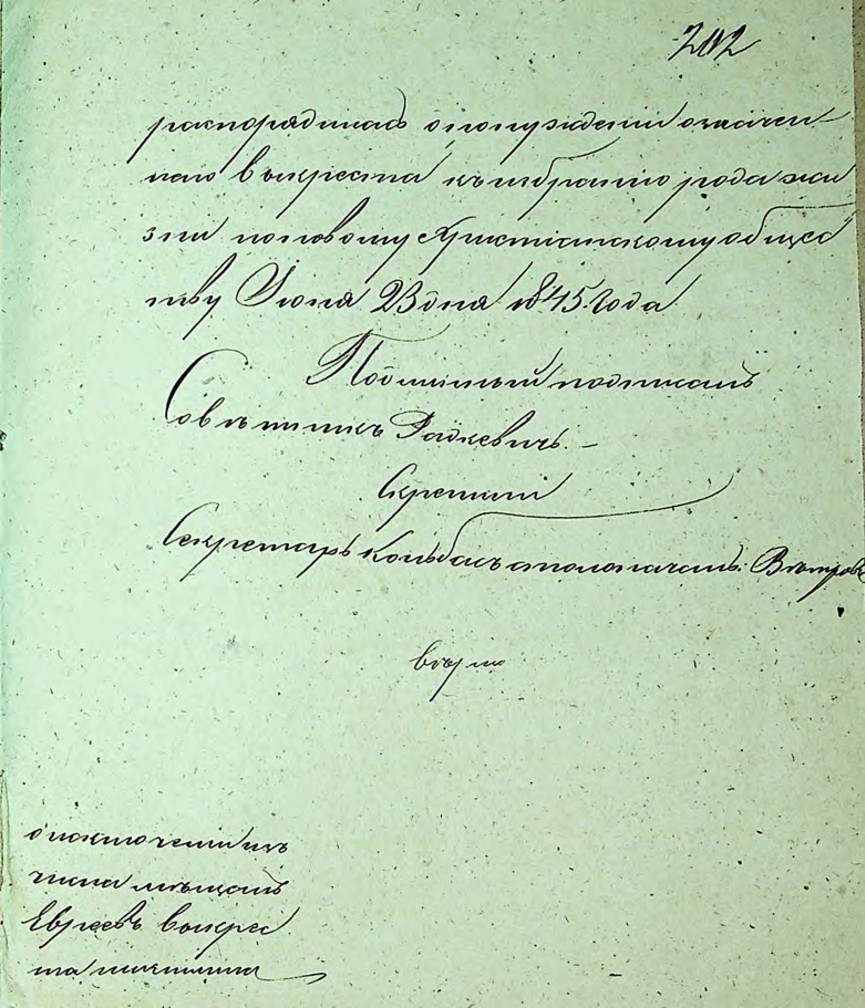 202
распорядилась о понуждении означен-
наго выкреста къ избранию рода жи
зни по новому Христианскому общес
тву Июня 23 дня 1845. Года
Подлинный подписалъ
Советникъ Радкевичь. —
Скрепилъ
Секретарь
верно
о исключении изъ
числа мещанъ
Евреевъ выкрес
та